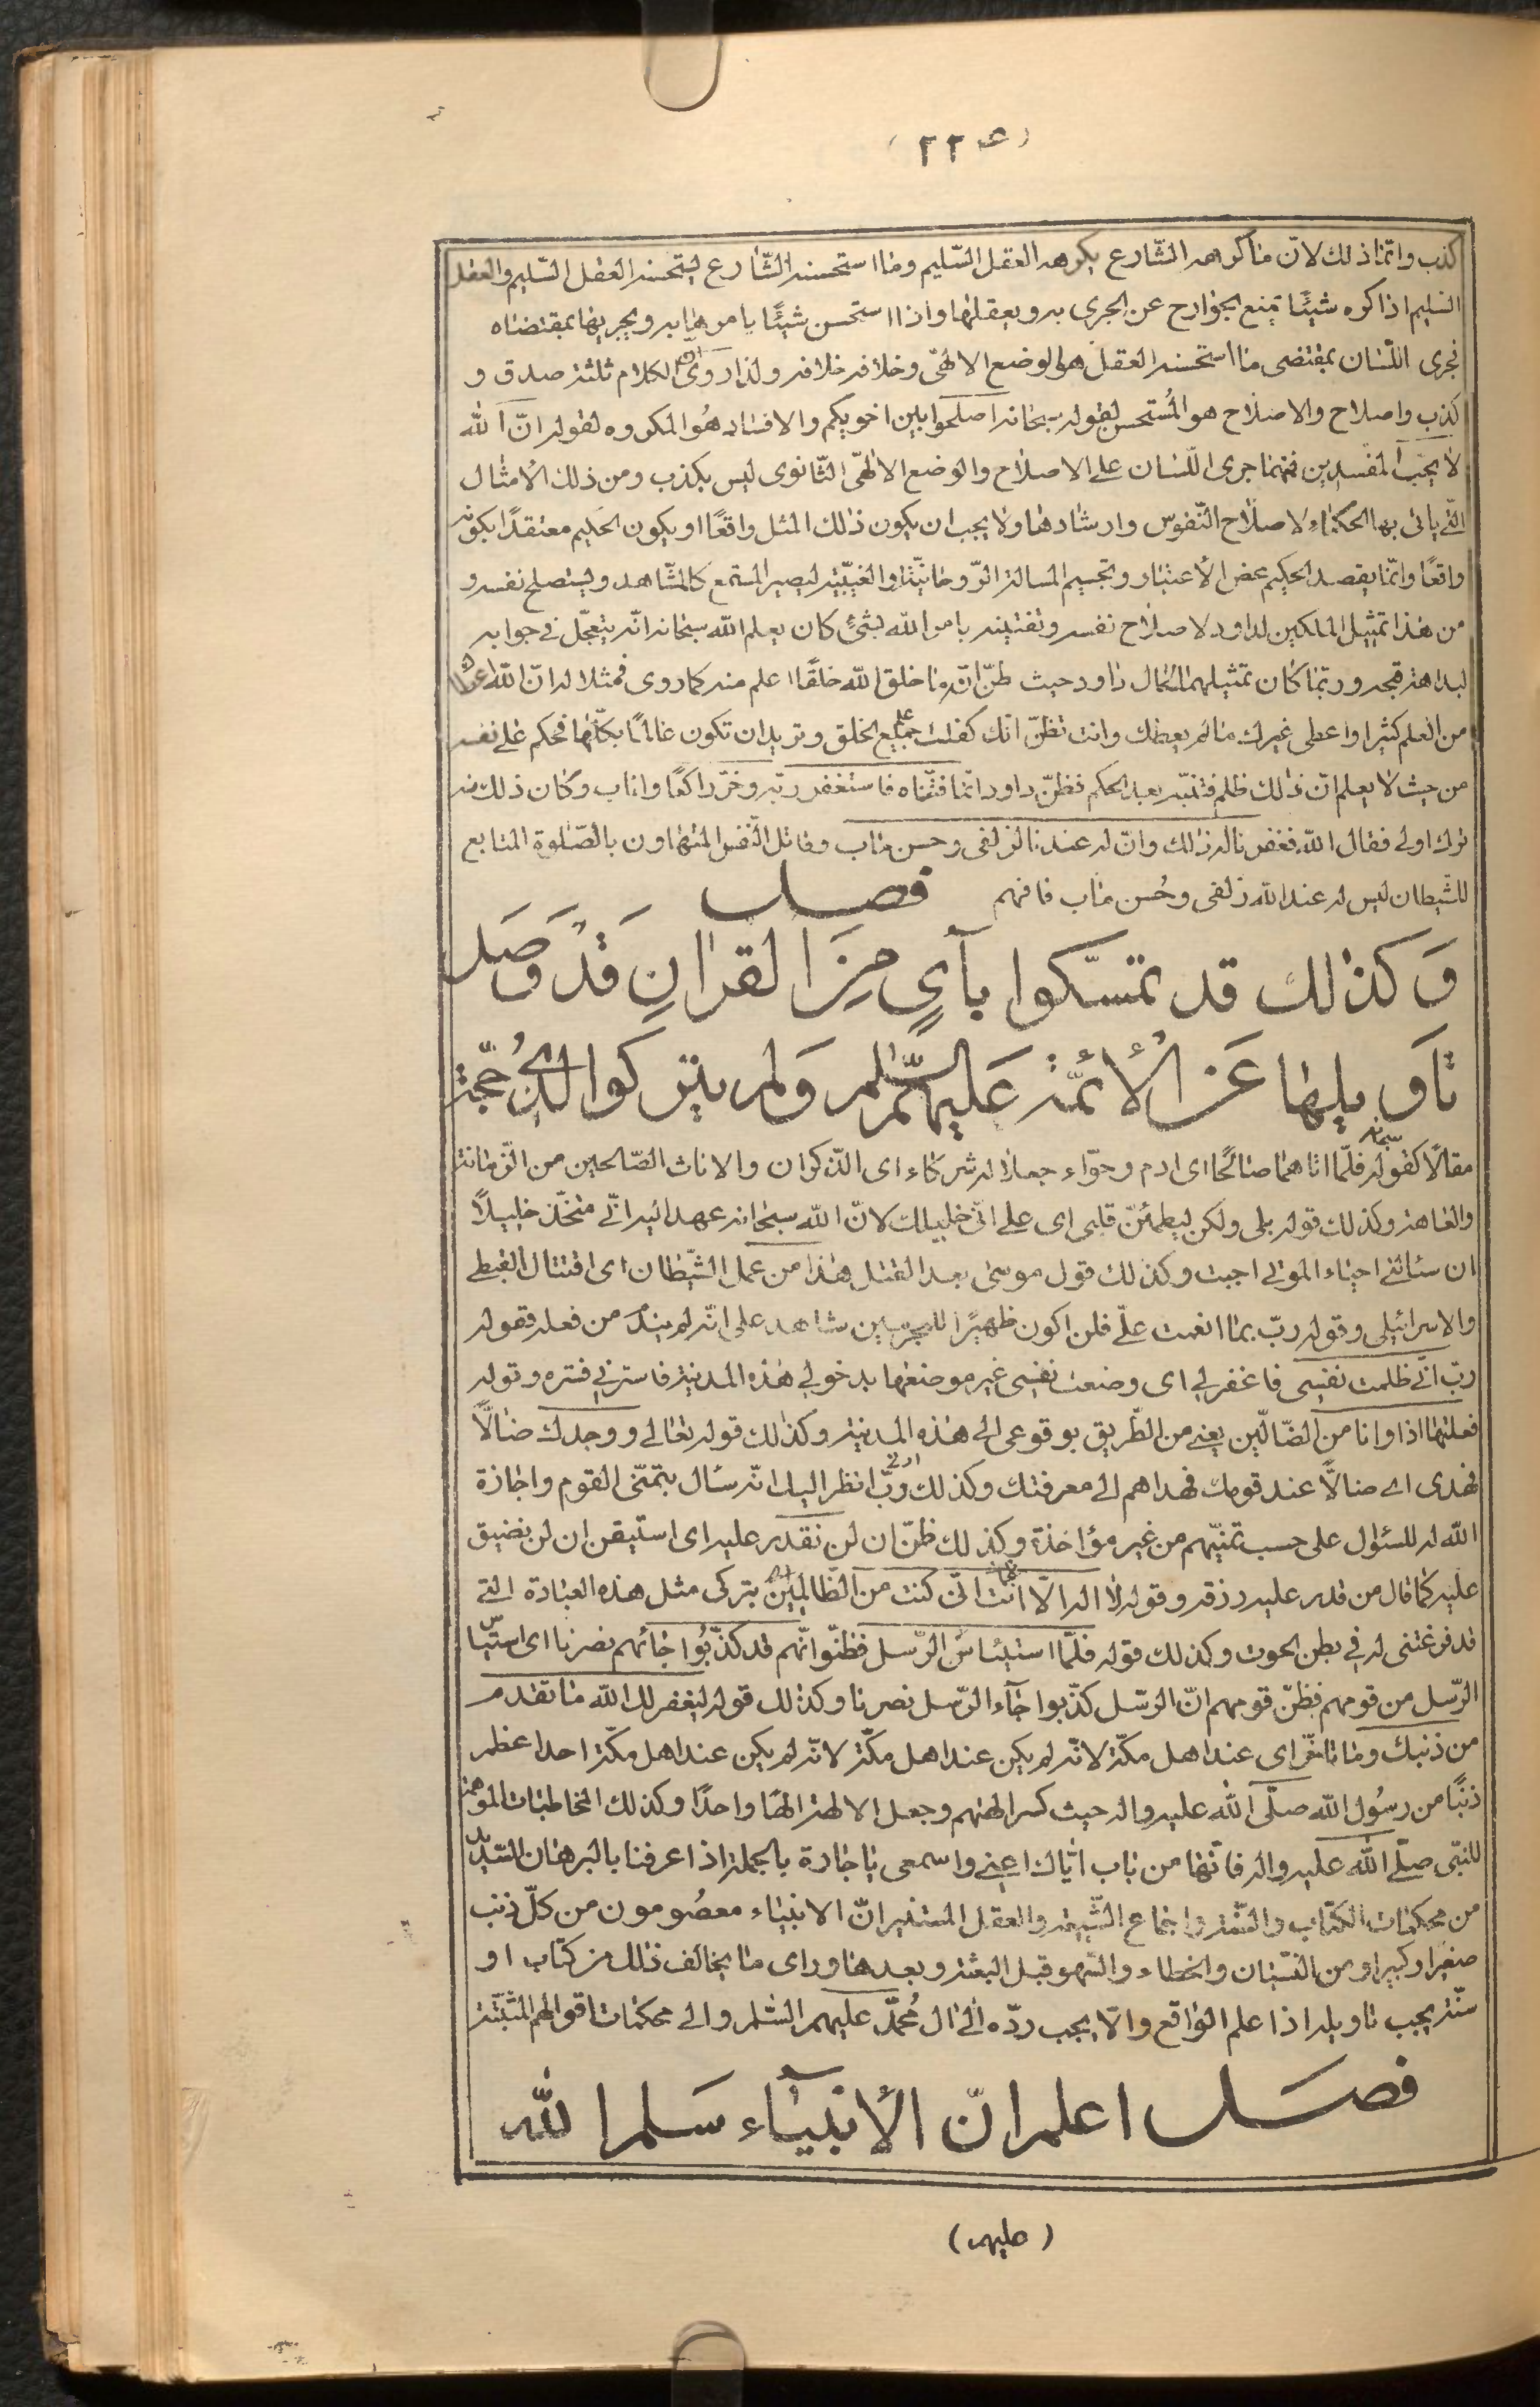 كذب وانّما ذلك لانّ ما كرهه الشّارع يكرهه العقل السّليم وما استحسنه الشّارع يستحسنه العقل السّليم والعقل
السليم اذا كره شيئًا تمنع الجوارح عن الجرى به ويعقلها واذا استحسن شيئًا يامرها به ويجريها بمقتضاه
فجرى اللّسان بمقتضى ما استحسنه العقل هو الوضع الالهىّ وخلافه خلافه ولذا روى انّ الكلام ثلثة صدق و
كذب واصلاح والاصلاح هو المُستحسن لقوله سبحانه اصلحوا بين اخويكم والافساد هُو المكروه لقوله انّ الله
لا يحبّ المفسدين فمهما جرى اللّسان على الاصلاح والوضع الالهىّ الثّانوى ليس بكذب ومن ذلك الامثال
الّتى ياتى بها الحكماء لاصلاح النّفوس وارشادها ولا يجب ان يكون ذلك المثل واقعًا او يكون الحكيم معتقدًا بكونه
واقعًا وانّما يقصد الحكيم محض الاعتبار وتجسيم المسالة الرّوحانيّة والغيبيّة ليصير المستمع كالمشاهد ويستصلح نفسه و
من هذا تمثيل الملكين لداود لاصلاح نفسه وتفتينه بامر الله بشئ كان يعلم الله سبحانه انّه يتعجّل فى جوابه
لبداهة قبحه وربّما كان تمثيلهما لكمال داود حيث ظنّ انّه ما خلق الله خلقًا اعلم منه كما روى فمثلا له انّ الله اعطاك
من العلم كثيرا واعطى غيرك ما لم يعطك وانت تظنّ انّك كفلت علم جميع الخلق وتريد ان تكون عالمًا بكلّها فحكم على نفسه
من حيث لا يعلم انّ ذلك ظلم فتنبّه بعد الحكم فظنّ داود انّما فتنّاه فاستغفر ربّه وخرّ راكعًا واناب وكان ذلك منه
ترك اولى فقال الله فغفرنا له ذلك وانّ له عندنا لزلفى وحسن ماب وقاتل النّفس المتهاون بالصّلوة المتابع
للشّيطان ليس له عند الله زلفى وحُسن ماب فافهم فصل
وَكذلك قد تمسّكوا بآىٍ مِنَ القرانِ قَدْ وَصَل
تأويلها عَن الأئمّة عَليهمُ السّلم وَلم يتركوا لذى حُجّة
مقالًا كقوله سبحانه فلمّا اتاهما صالحًا اى ادم وحوّاء جعلا له شركاء اى الذّكران والاناث الصّالحين من الزّمانة
والعاهة وكذلك قوله بلى ولكن ليطمئنّ قلبى اى على انّى خليلك لانّ الله سبحانه عهد اليه انّى متخذ خليلًا
ان سئالنى احياء الموتى اجبت وكذلك قول موسى بعد القتل هذا من عمل الشّيطان اى اقتتال القبطى
والاسرائيلى وقوله ربّ بما انعمت علىّ فلن اكون ظهيرًا للمجرمين شاهد على انّه لم يندم من فعله فقوله
ربّ انّى ظلمت نفسى فاغفر لى اى وضعت نفسى غير موضعها بدخولى هذه المدينة فاسترنى فستره وقوله
فعلتها اذا وانا من الضّالّين يعنى من الطّريق بوقوعى الى هذه المدينة وكذلك قوله تعالى ووجدك ضالًّا
فهدى اى ضالًّا عند قومك فهداهم الى معرفتك وكذلك ربّ ارنى انظر اليك انّه سئال بتمنّى القوم واجازة
الله له للسئوال على حسب تمنّيهم من غير مؤاخذة وكذلك ظنّ ان لن نقدر عليه اى استيقن ان لن نضيق
عليه كما قال من قدر عليه رزقه وقوله لا اله الّا انت سبحانك انّى كنت من الظّالمين اى بتركى مثل هذه العبادة التى
قد فرغتنى له فى بطن الحوت وكذلك قوله فلمّا استيئاس الرّسل فظنّوا انّهم قد كذّبُوا جائهم نصرنا اى استيئس
الرّسل من قومهم فظنّ قومهم انّ الرسل كذّبوا جآء الرّسل نصرنا وكذلك قوله ليغفر لك الله ما تقدم
من ذنبك وما تاخّر اى عند اهل مكّة لانّه لم يكن عند اهل مكّة لانّه لم يكن عند اهل مكّة احد اعظم
ذنبًا من رسُول الله صلّى الله عليه واله حيث كسر الهتهم وجعل الالهة الهًا واحدًا وكذلك المخاطبات الموهمة
للنّبى صلّى الله عليه واله فانّها من باب ايّاك اعنى واسمعى يا جارة بالجملة اذا عرفنا بالبرهان السّديد
من محكمات الكتاب والسّنّة واجماع الشّيعة والعقل المستنير انّ الانبياء معصُومون من كلّ ذنب
صغيرا وكبيرا ومن النّسيان والخطاء والسّهو قبل البعثة وبعدها وراى ما يخالف ذلك من كتاب او
سنّة يجب تاويله اذا علم الواقع والّا يجب ردّه الى ال مُحمّد عليهم السّلم والى محكمات اقوالهم المثبتة
فصَل اعلم انّ الأنبيآء سَلم الله
(عليهم)